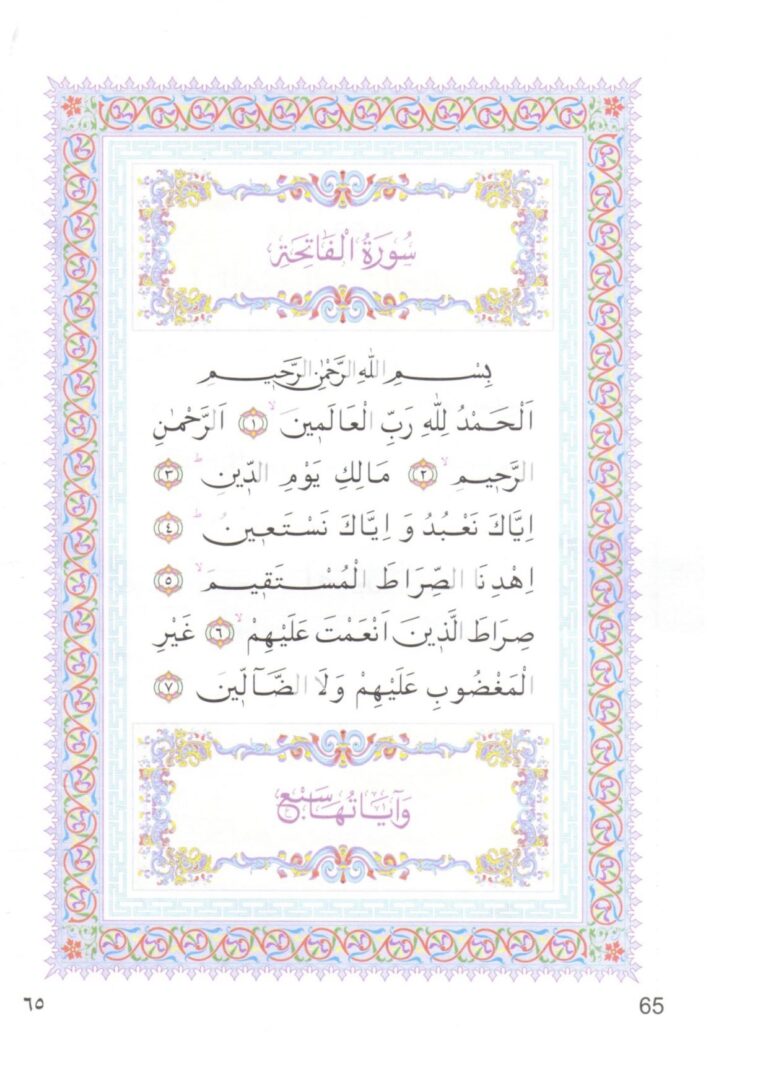 سُورَةُ الْفَاتِحَةِ
بِسْمِ اللّٰهِ الرَّحْمٰنِ الرَّحٖيمِ
اَلْحَمْدُ لِلّٰهِ رَبِّ الْعَالَمٖينَۙ ﴿١﴾ اَلرَّحْمٰنِ
الرَّحٖيمِۙ ﴿٢﴾ مَالِكِ يَوْمِ الدّٖينِؕ ﴿٣﴾
اِيَّاكَ نَعْبُدُ وَ اِيَّاكَ نَسْتَعٖينُؕ ﴿٤﴾
اِهْدِنَا الصِّرَاطَ الْمُسْتَقٖيمَۙ ﴿٥﴾
صِرَاطَ الَّذٖينَ اَنْعَمْتَ عَلَيْهِمْۙ ﴿٦﴾ غَيْرِ
الْمَغْضُوبِ عَلَيْهِمْ وَلَا الضَّٓالّٖينَ ﴿٧﴾
وَآيَاتُهَا سَبْعٌ
٦٥ 65